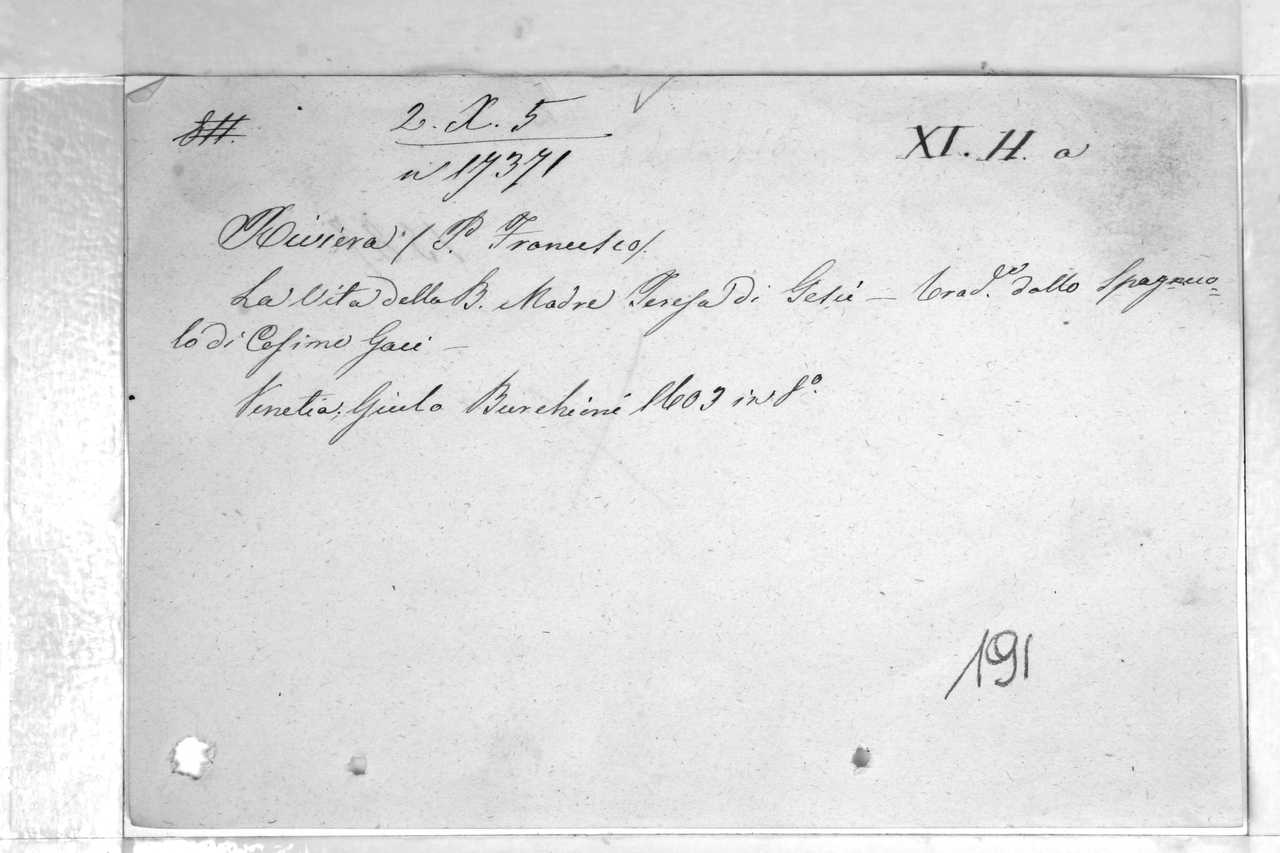 2. X. 5
XI. H. a
n 17371
Riviera (P. Francesco).
La Vita della B. Madre Teresa di Gesù — Trad.e dallo Spagnuo=
lo di Cosimo Gaci —
Venetia, Giulo Burchioni 1603 in 8º.
191